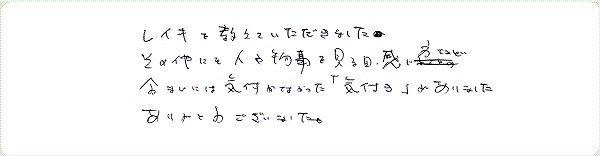 レイキを教えていただきました。
その他にも人や物事を見る目、感じ
今までには気付かなかった「気付き」がありました
ありがとうございました。